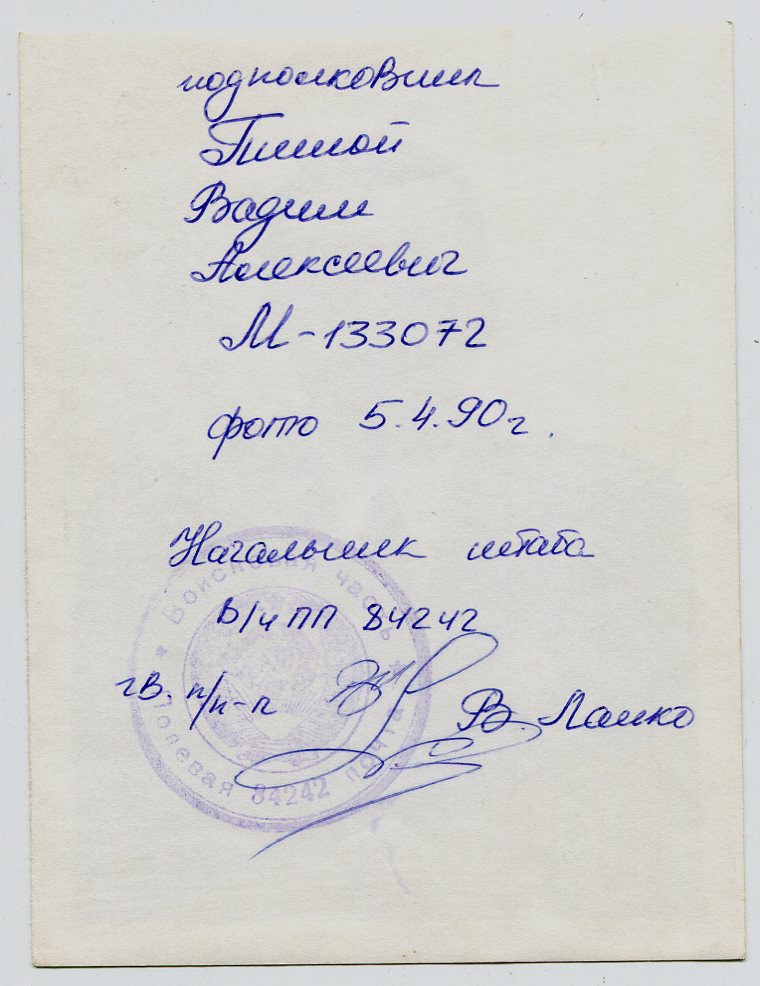 подполковник
Вадим
Алексеевич
М-133072
фото 5.4.90 г.
Начальник штаба
В/ч ПП 84242
гв. п/п-к В.
Войсковая часть
Полевая почта
84242